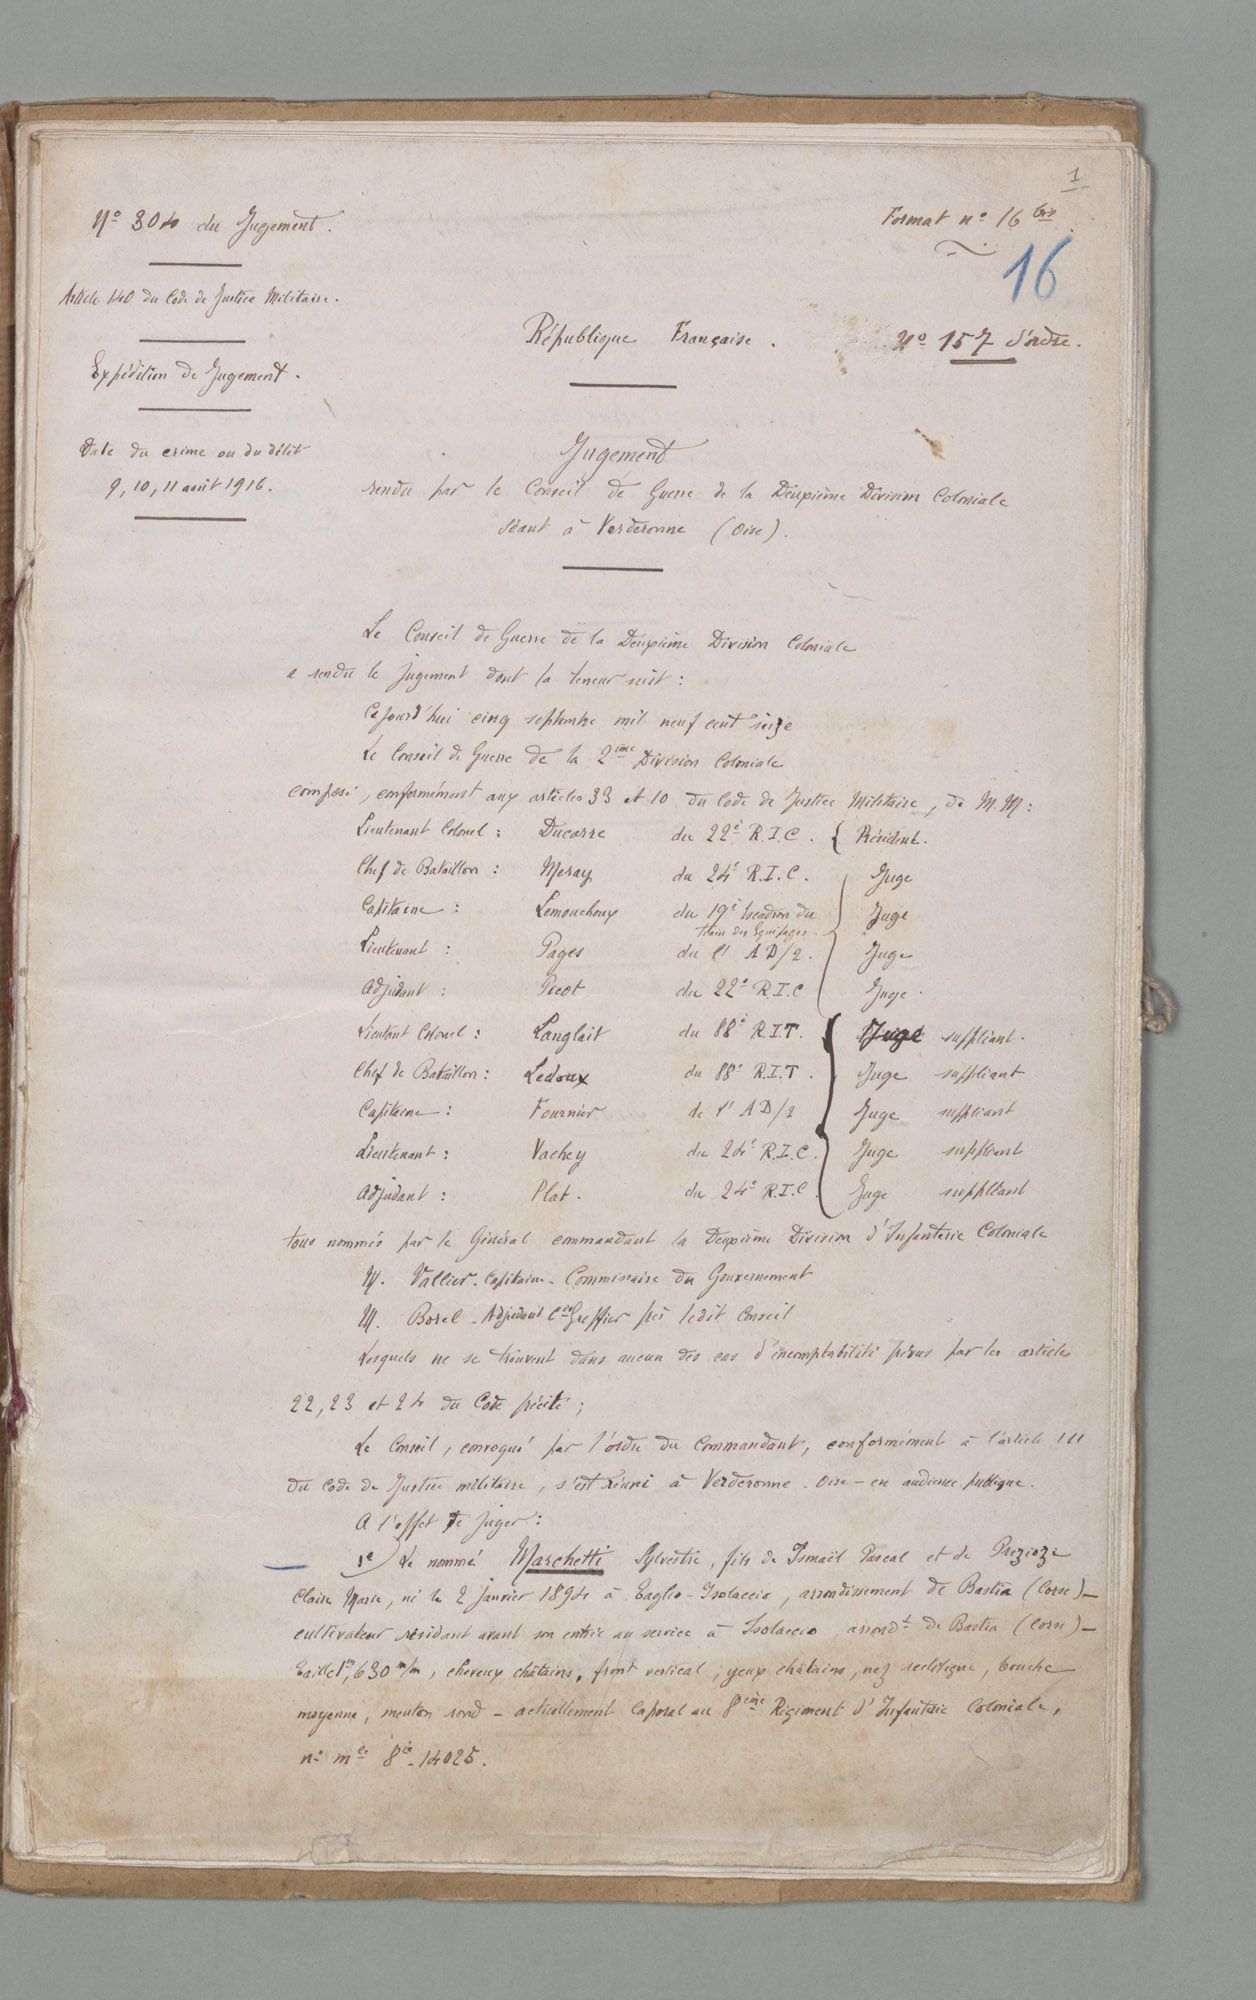 1
N° 304 du Jugement.
Format n° 16 bis
16
Article 140 du Code de Justice Militaire.
République Française.
N° 157 d'ordre.
Expédition de Jugement.
Date du crime ou du délit
9, 10, 11 août 1916.
Jugement
rendu par le Conseil de Guerre de la Deuxième Division Coloniale
séant à Verderonne (Oise).
Le Conseil de Guerre de la Deuxième Division Coloniale
a rendu le jugement dont la teneur suit :
Cejourd'hui cinq septembre mil neuf cent seize
Le Conseil de Guerre de la 2ème Division Coloniale
composé, conformément aux articles 33 et 10 du Code de Justice Militaire, de M.M :
Lieutenant Colonel : Ducarre du 22è R.I.C. { Président.
Chef de Bataillon : Meray du 24è R.I.C. Juge
Capitaine : Lemouchoux du 19è Escadron du Train des Equipages. Juge
Lieutenant : Pages du l' AD/2. Juge
Adjudant : Picot du 22è R.I.C Juge.
Lieutant Colonel : Langlait du 88è R.I.T. Juge suppléant.
Chef de Bataillon : Ledoux du 88è R.I.T. Juge suppléant
Capitaine : Fournier de l' AD/2 Juge suppléant
Lieutenant : Vachey du 24è R.I.C. Juge suppléant
Adjudant : Plat. du 24è R.I.C. Juge suppléant
tous nommés par le Général commandant la Deuxième Division d'Infanterie Coloniale
M. Vallier - Capitaine - Commissaire du Gouvernement
M. Borel - Adjudant Greffier près ledit Conseil
Lesquels ne se trouvent dans aucun des cas d'incomptabilité prévus par les articles
22, 23 et 24 du Code précité ;
Le Conseil, convoqué par l'ordre du Commandant, conformément à l'article 111
du Code de Justice militaire, s'est réuni à Verderonne - Oise - en audience publique.
A l'effet de juger :
1°) Le nommé Marchetti Sylvestre, fils de Ismaïl Pascal et de Preziozi
Claire Marie, né le 2 janvier 1894 à Taglio-Isolaccio, arrondissement de Bastia (Corse) -
cultivateur résidant avant son entrée au service à Isolaccio, arrondt de Bastia (Corse) -
Taille 1m,630 m/m, cheveux châtains, front vertical, yeux châtains, nez rectiligne, bouche
moyenne, menton rond - actuellement Caporal au 8ème Régiment d'Infanterie Coloniale,
n° mle 8è - 14025.